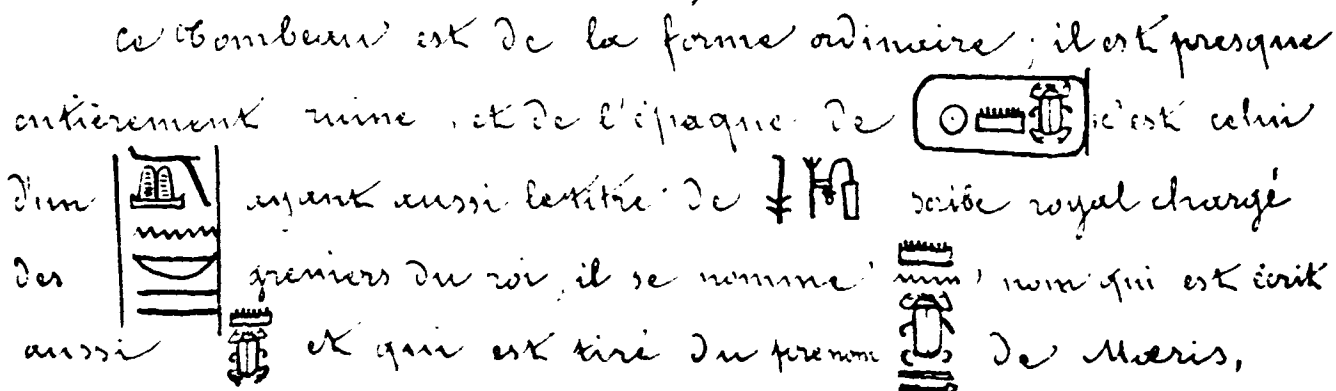 ce tombeau est de la forme ordinaire, il est presque
entièrement ruiné, et de l'époque de 𓍹𓇳𓏠𓆣𓍺 c'est celui
d'un ayant aussi le titre de 𓇓𓏞 scribe royal chargé
des greniers du roi, il se nomme 𓏠𓈖 nom qui est écrit
aussi 𓏠𓆣 et qui est tiré du prénom de Mœris,